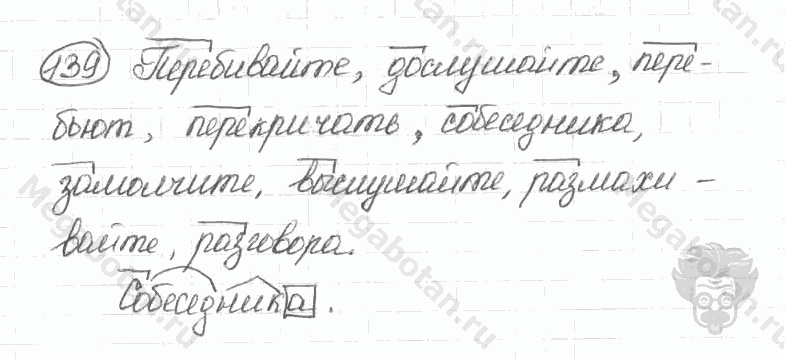 139 Перебивайте, дослушайте, пере-
бьют, перекричать, собеседника,
замолчите, выслушайте, размахи-
вайте, разговора.
Собеседника.
Megabotan.ru
Megabotan.ru
Megabotan.ru